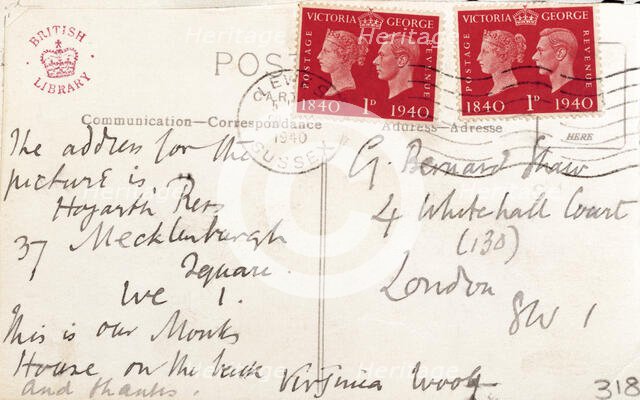 BRITISH
LIBRARY
POST
VICTORIA GEORGE
POSTAGE
REVENUE
1840 1D 1940
VICTORIA GEORGE
POSTAGE
REVENUE
1840 1D 1940
LEWES
1940
SUSSEX
Communication—Correspondance
Address—Adresse
HERE
The address for the
picture is,
Hogarth Press
37 Mecklenburgh
Square.
WC 1.
This is our Monks
House on the back
and thanks.
Virginia Woolf
G. Bernard Shaw
4 Whitehall Court
(130)
London
SW 1
318
Heritage